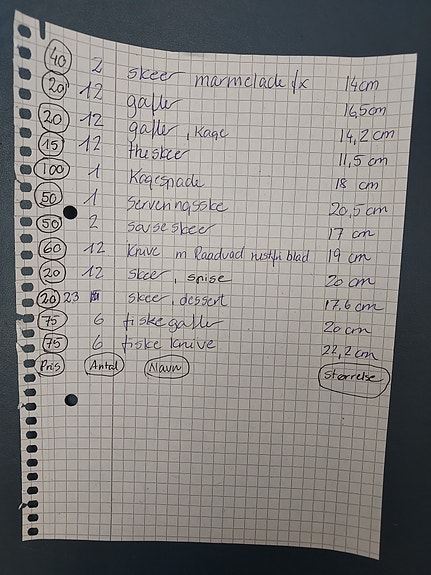 40 2 skeer marmelade fx 14cm
20 12 gafler 16,5cm
20 12 gafler, Kage 14,2 cm
15 12 theskeer 11,5 cm
100 1 Kagespade 18 cm
50 1 Serveringsske 20,5 cm
50 2 Sauseskeer 17 cm
60 12 Knive m Raadvad rustfri blad 19 cm
20 12 skeer, spise 20 cm
20 23 skeer, dessert 17,6 cm
75 6 fiskegafler 20 cm
75 6 fiske Knive 22,2 cm
Pris Antal Navn Størrelse